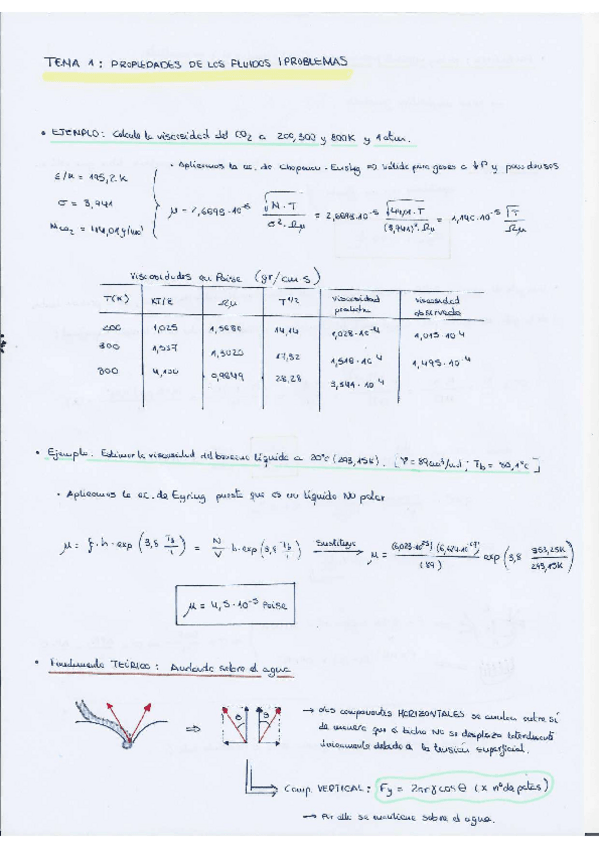 TEMA 1: PROPIEDADES DE LOS FLUIDOS | PROBLEMAS
• EJEMPLO: Calcule la viscosidad del CO2 a 200, 300 y 800K y 1 atm.
· Aplicamos la ec. de Chapman-Enskog ⇒ válida para gases a ↓P y poco densos
ε/K = 195,2 K
σ = 3,941
M CO2 = 44,01 g/mol
μ = 2,6693·10⁻⁵ √(M·T) / σ²·Ωμ = 2,6693·10⁻⁵ √(44,01·T) / (3,941)²·Ωμ = 1,140·10⁻⁵ √T / Ωμ
Viscosidades en Poise (gr/cm·s)
T(K) KT/ε Ωμ T^1/2 viscosidad predicha viscosidad observada
200 1,025 1,5680 14,14 1,028·10⁻⁴ 1,015·10⁻⁴
300 1,537 1,3020 17,32 1,518·10⁻⁴ 1,495·10⁻⁴
800 4,100 0,9649 28,28
• Ejemplo: Estimar la viscosidad del benceno líquido a 20°C (293,15K). [V = 89 cm³/mol ; Tb = 80,1°C]
· Aplicamos la ec. de Eyring puesto que es un líquido NO polar
exp (3,8 Tb/T) = N/V h·exp (3,8 Tb/T) Sustituyo → μ = (6,023·10²³) (6,624·10⁻²⁷) / (89) exp (3,8 353,25K / 293,15K)
μ = 4,5·10⁻³ Poise
• Fundamento TEÓRICO: Andante sobre el agua
θ θ
→ Las componentes HORIZONTALES se anulan entre sí
de manera que el bicho NO se desplaza lateralmente
únicamente debido a la tensión superficial.
Comp. VERTICAL: Fy = 2πrγcosθ (x nº de patas)
→ Por ello se mantiene sobre el agua.